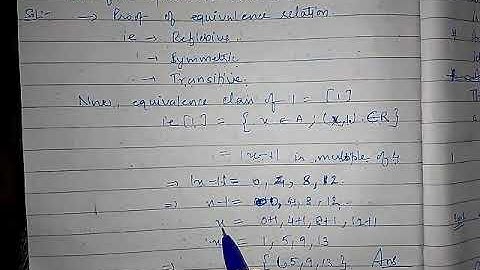 Sol:- → Proof of equivalence relation.
ie → Reflexive.
→ Symmetric
→ Transitive.
Now, equivalence class of 1 = [1]
ie [1] = { x ∈ A ; (x, 1) ∈ R}
= |x-1| is multiple of 4
⇒ |x-1| = 0, 4, 8, 12.
⇒ x-1 = 0, 4, 8, 12.
x = 0+1, 4+1, 8+1, 12+1
x = 1, 5, 9, 13
⇒ {1, 5, 9, 13}. Ans